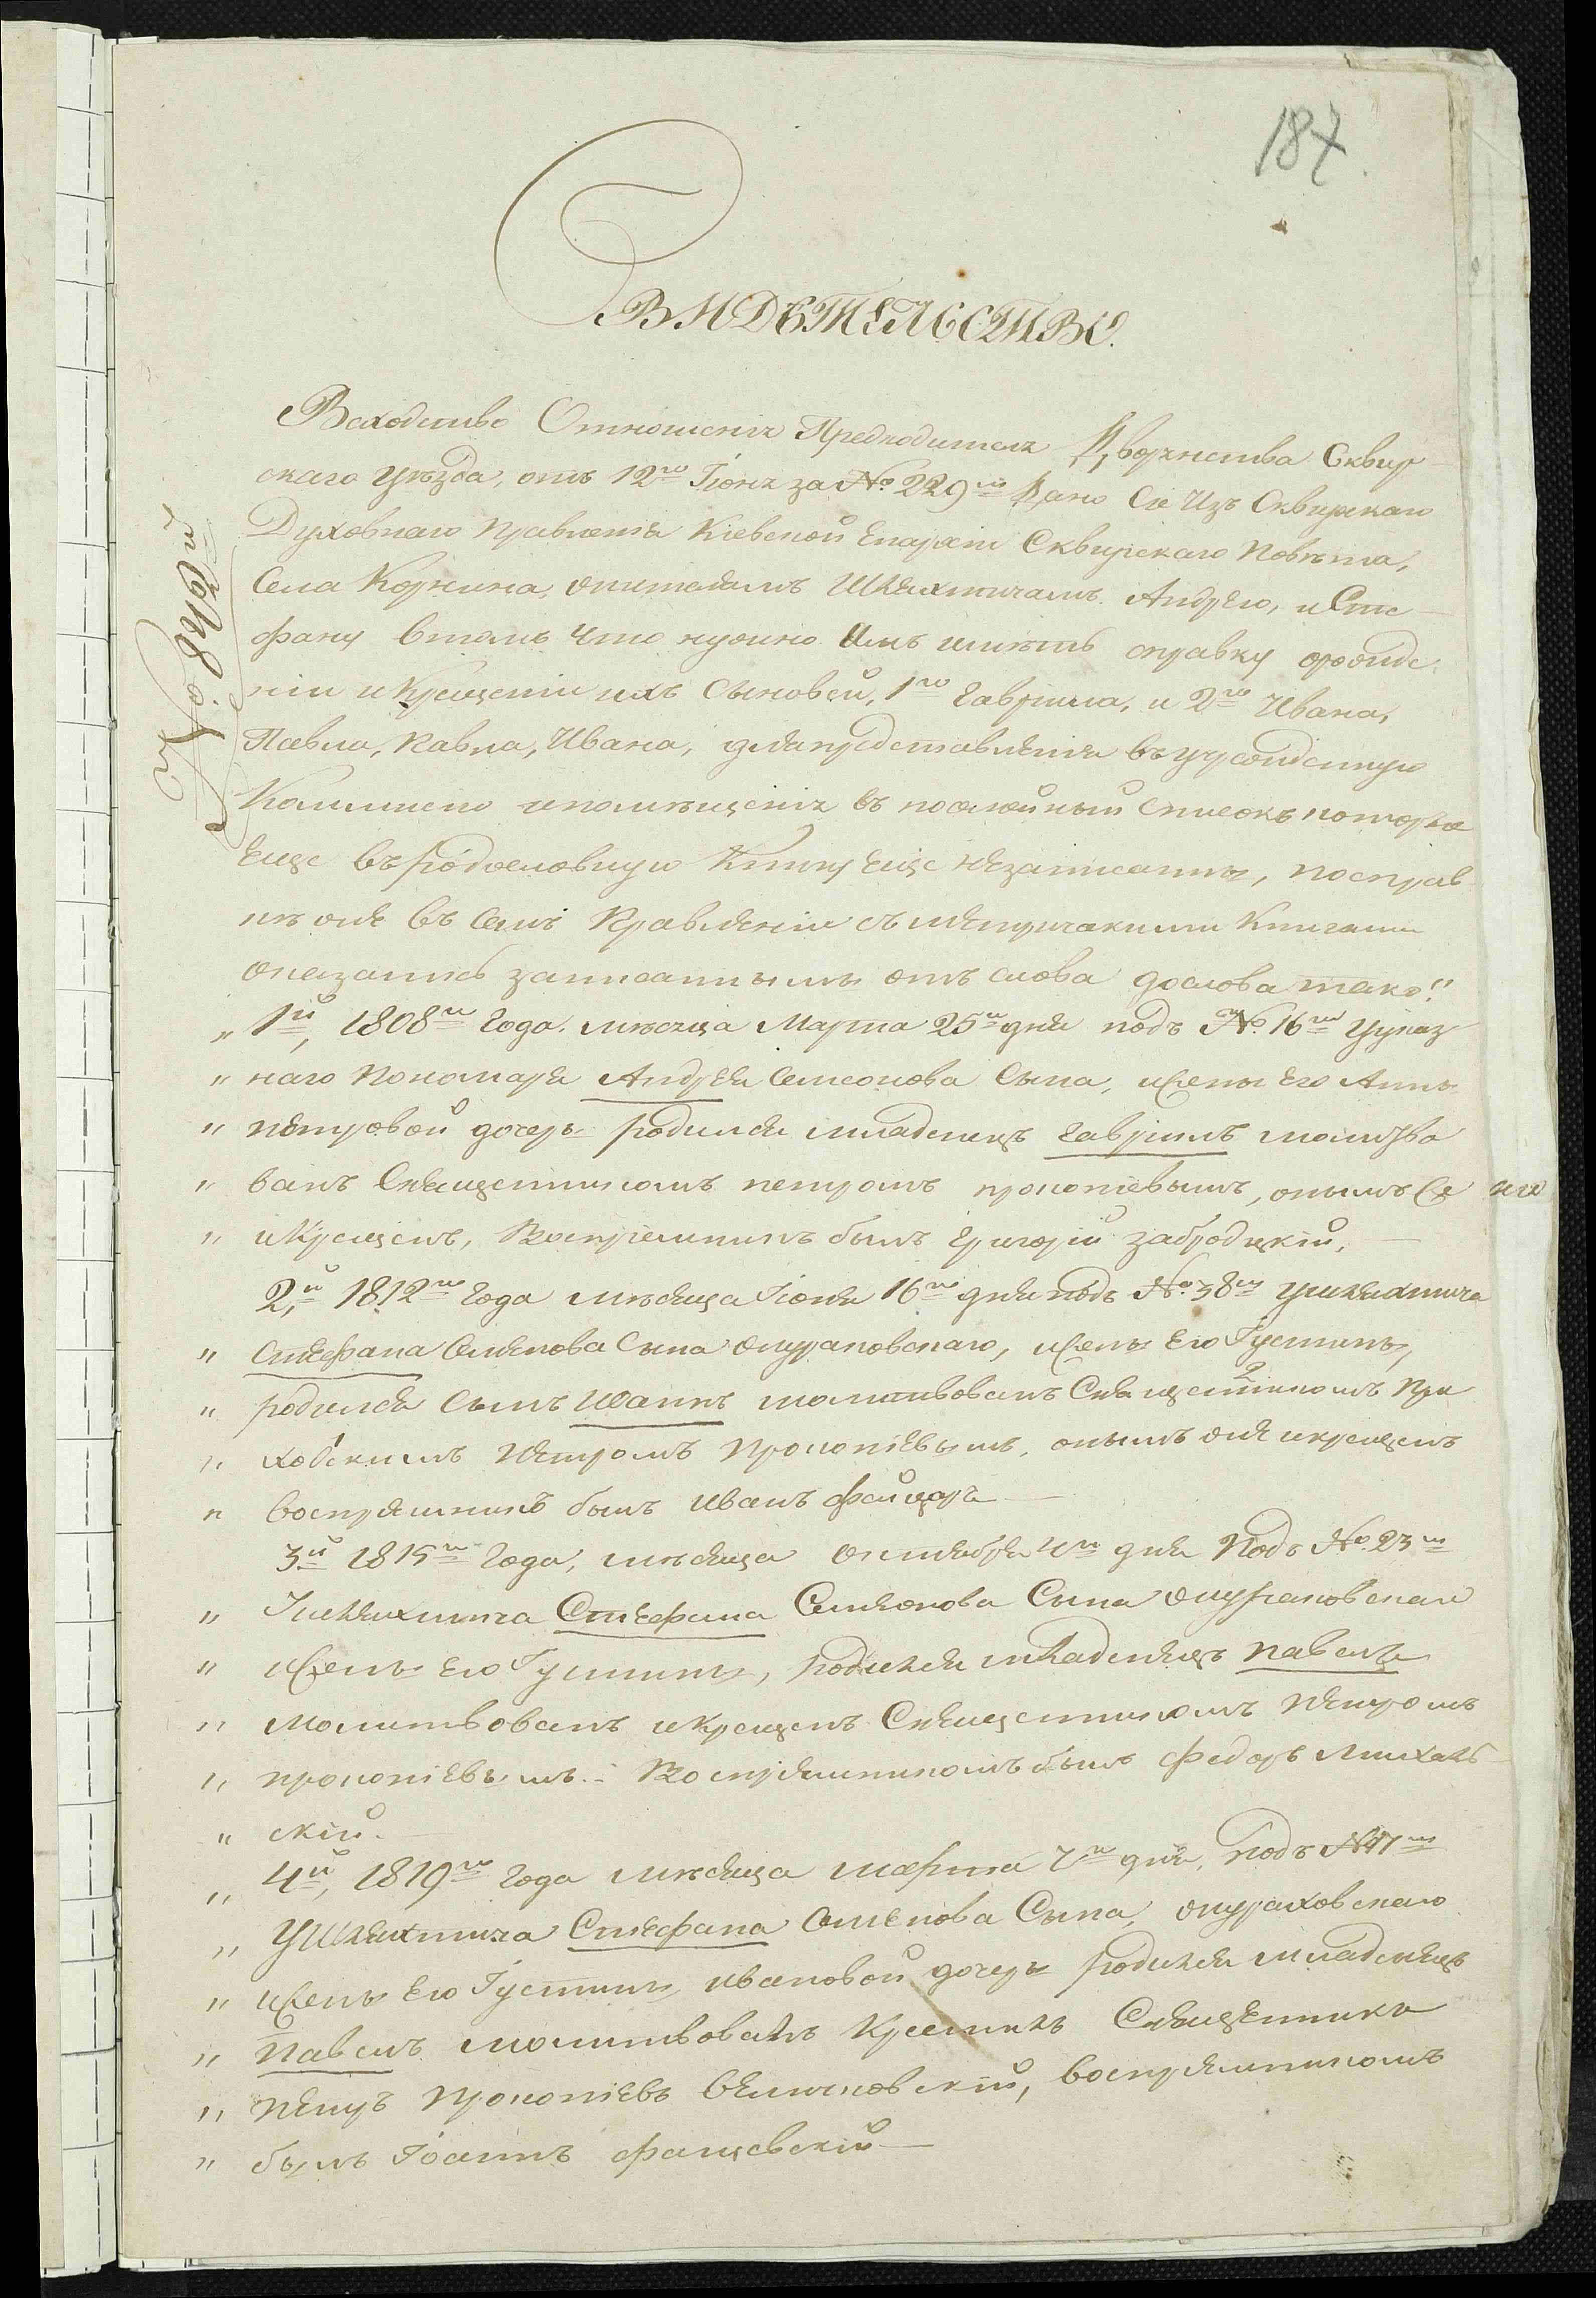 187.
СВИДѢТЕЛЬСТВО.
Всходство Отношенія Предводителя Дворянства Сквир-
скаго уѣзда, отъ 12го Іюня за № 229м Дано Сіе Изъ Сквирскаго
Духовнаго Правленія Кіевской Епархіи Сквирскаго Повѣта,
Села Корнина, Шляхтичамъ Андрею, и Сте-
фану втомъ Что нужно Имъ имѣть справку орожде-
ніи и Крещеніи ихъ Сыновей, 1го Гавріила, и 2го Ивана,
Павла, Павла, Ивана, дляпредставленія въ учрежденную
Коммисію ипомѣщенія въ посемейный Списокъ которые
Еще въ родословную Книгу Еще Незаписанны, посправ-
кѣ оже въ Семъ Правленіи съ метрическими Книгами
оказались записанными отъ слова дослова тако:
„ 1й, 1808го Года. мѣсяца Марта 25го дня подъ № 16м Ууказ-
„ наго Пономаря Андрея Семсонова Сына, ижены Его Анны
„ петровой дочеры родился младенецъ Гавріилъ молитво-
„ ванъ Священникомъ петромъ прокопіевымъ, онымъ же
„ иКрещенъ, Воспріемникъ былъ Григорій забродцкій,
2й, 1812го Года мѣсяца Іюня 16го дня подъ № 38м ушляхтича
„ Стефана Семенова Сына ижены Его Густины,
„ родился Сынъ Иоаннъ молитвованъ Священникомъ При-
„ ходскимъ Петромъ Прокопіевымъ, онымъ оже икрещенъ
„ воспріемникъ былъ Иванъ
3й 1815го Года, мѣсяца октября 4го дня Подъ № 23м
„ Ушляхтича Стефана Семионова Сына
„ ижены Его Густины, родился младенецъ павелъ
„ Молитвованъ иКрещенъ Священникомъ Петромъ
„ прокопіевымъ.: Воспріемникомъ былъ Федоръ Михаль-
„ скій.
„ 4й, 1819го Года мѣсяца марта дня, подъ № 17м
„ УШляхтича Стефана Семенова Сына,
„ ижены Его Густины ивановой дочеры родился младенецъ
„ павелъ молитвовалъ Крестилъ Священникъ
„ Петръ Прокопіевъ Величковскій, воспріемникомъ
„ былъ Іоаннъ